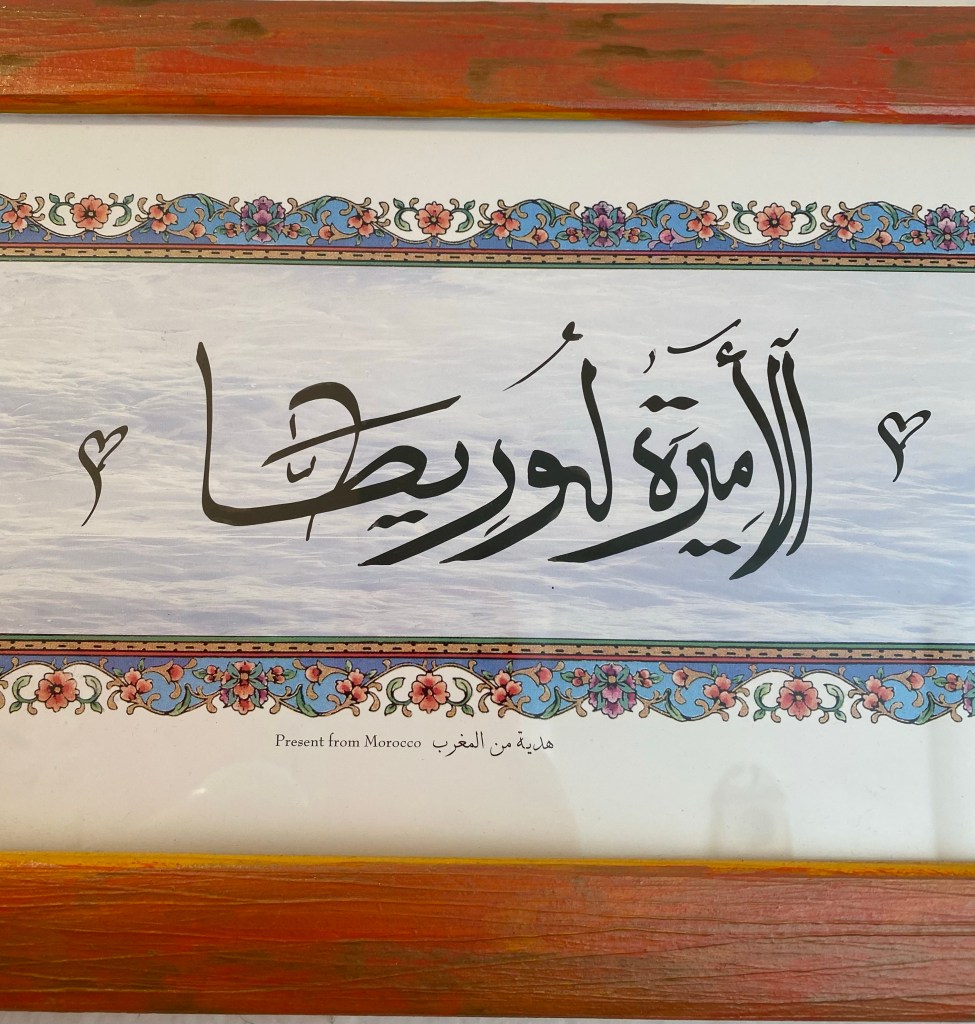 الأميرة لوريطا
Present from Morocco هدية من المغرب